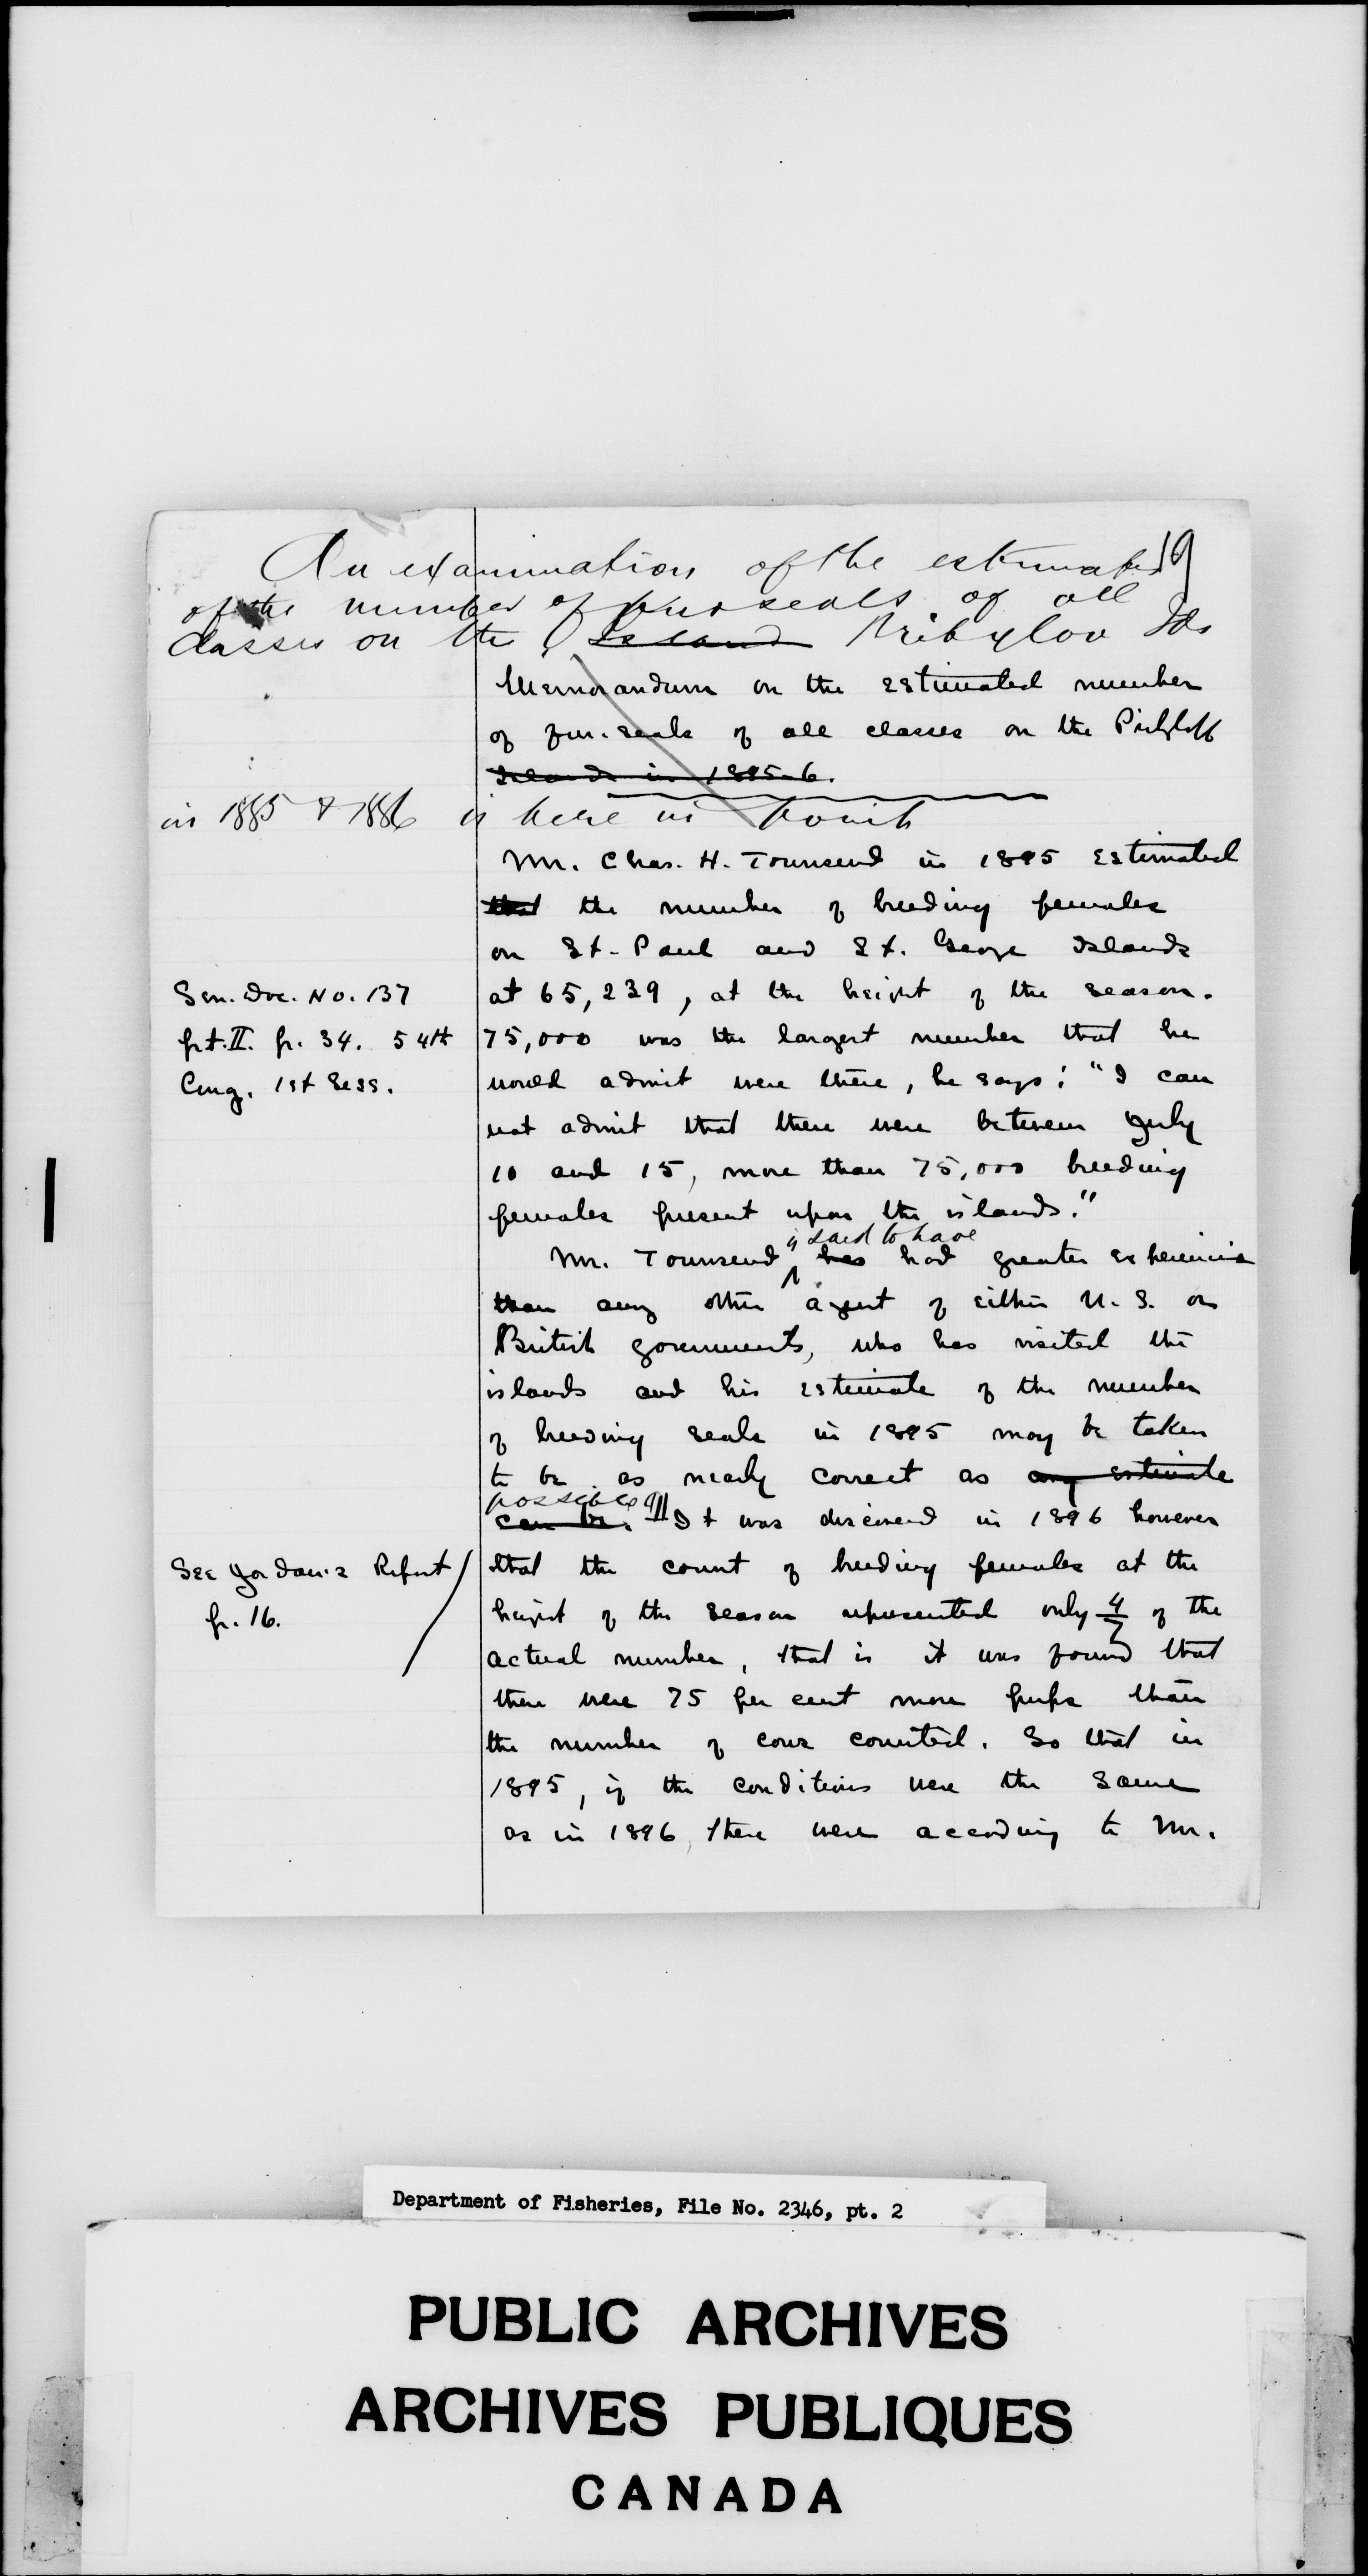 19
An examination of the estimates
of the number of fur seals of all
classes on the Island Pribylov Ids
Memorandum on the estimated number
of fur-seals of all classes on the Pribyloff
Islands in 1895-6.
in 1885 & 1886 is here in point
Mr. Chas. H. Townsend in 1895 estimated
that the number of breeding females
on St. Paul and St. George Islands
Sen. Doc. No. 137
at 65,239, at the height of the season.
pt. II. p. 34. 54th
75,000 was the largest number that he
Cong. 1st Sess.
would admit were there, he says: "I can
not admit that there were between July
10 and 15, more than 75,000 breeding
females present upon the islands."
is said to have
Mr. Townsend has had greater experience
than any other agent of either U.S. or
British governments, who has visited the
islands and his estimate of the number
of breeding seals in 1895 may be taken
to be as nearly correct as any estimate
possible
can be. It was discovered in 1896 however
See Jordan's Report
that the count of breeding females at the
p. 16.
height of the season represented only 4/7 of the
actual number, that is it was found that
there were 75 per cent more pups than
the number of cows counted. So that in
1895, if the conditions were the same
as in 1896, there were according to Mr.
Department of Fisheries, File No. 2346, pt. 2
PUBLIC ARCHIVES
ARCHIVES PUBLIQUES
CANADA